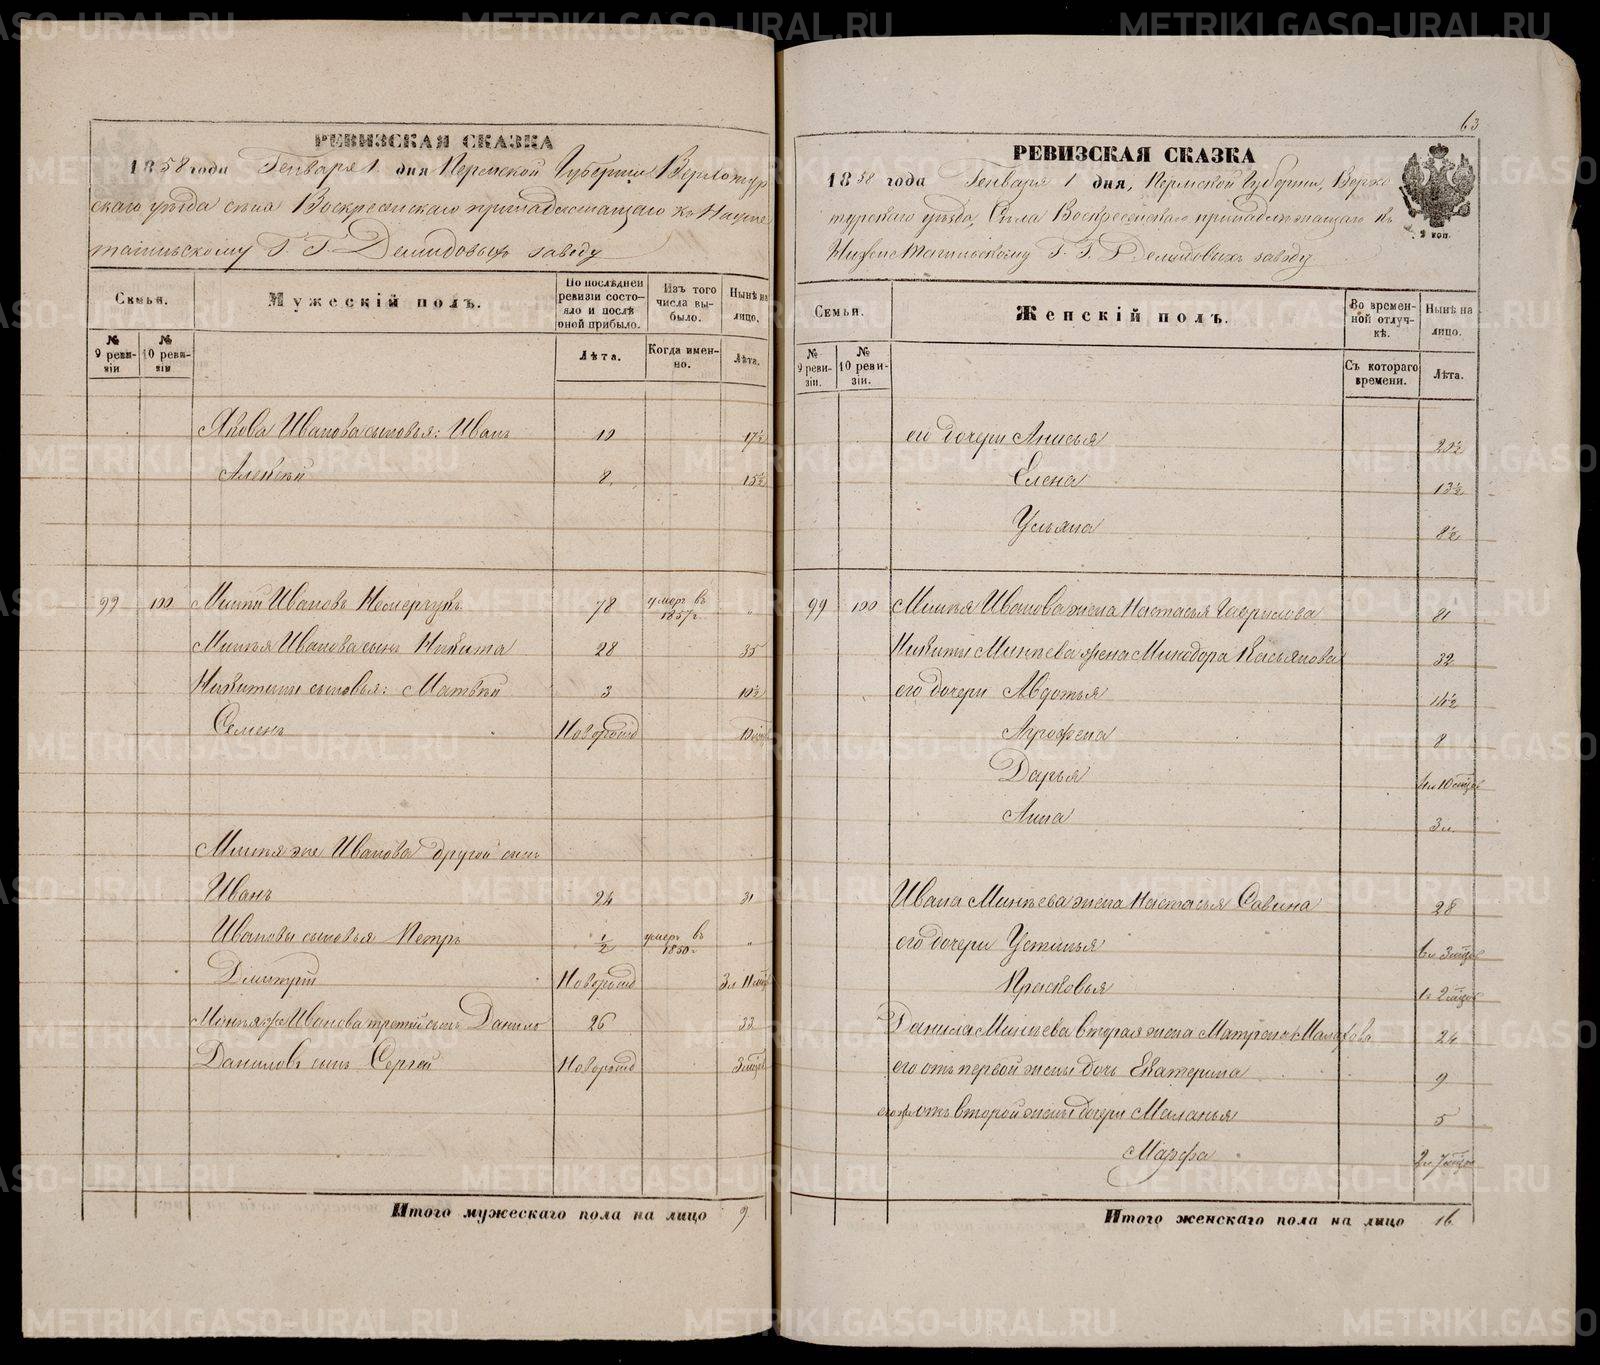 РЕВИЗСКАЯ СКАЗКА
1858 года Генваря 1 дня Пермской Губернии Верхотур
скаго уезда села Воскресенскаго принадлежащаго къ Нижне
тагильскому Г. Г. Демидовыхъ заводу
Семьи.
Мужескiй полъ.
По послѣдней ревизiи состояло и послѣ оной прибыло.
Изъ того числа выбыло.
Нынѣ на лицо.
№ 9 ревизiи
№ 10 ревизiи
Лѣта.
Когда именно.
Лѣта.
Якова Иванова сыновья: Иванъ 10 17½
Алексѣй 8 15½
99 100 Миней Ивановъ 78 умеръ въ 1857 г. „
Минѣя Иванова сынъ Никита 28 35
Никитины сыновья: Матвѣй 3 10½
Семенъ Новорожд
Минѣя же Иванова другой сынъ
Иванъ 24 31
Ивановы сыновья Петръ ½ умеръ въ 1850 г „
Дмитрiй Новорожд 3 л 11 мѣц
Минѣя ж Иванова третiй сынъ Данило 26 33
Даниловъ сынъ Сергей Новорожд 3 мѣц
Итого мужескаго пола на лицо 9
63
РЕВИЗСКАЯ СКАЗКА
1858 года Генваря 1 дня, Пермской Губернiи, Верхо
турскаго уезда, Села Воскресенскаго принадлежащаго къ
Нижне Тагильскому Г. Г. Демидовыхъ заводу
2 коп.
Семьи.
Женскiй полъ.
Во временной отлучкѣ.
Нынѣ на лицо.
№ 9 ревизiи.
№ 10 ревизiи.
Съ котораго времени.
Лѣта.
его дочери Анисья 20½
Елена 13½
Ульяна 8½
99 100 Минѣя Иванова жена Настасья Гаврилова 81
Никиты Минеева жена Минодора Касьянова 32
его дочери Авдотья 14½
Агрофена 8
Дарья 4 л 10 мѣцов
Анна 3 л.
Ивана Минѣева жена Настасья Савина 28
его дочери Устинья 6 л 3 мѣцов
Прасковья 1 г 2 мѣцов
Данила Минѣева вторая жена Матрена Малахова 24
его отъ первой жены дочь Екатерина 9
его ж отъ второй жены дочери Маланья 5
Марфа 2 л 7 мѣцов
Итого женскаго пола на лицо 16
METRIKI.GASO-URAL.RU